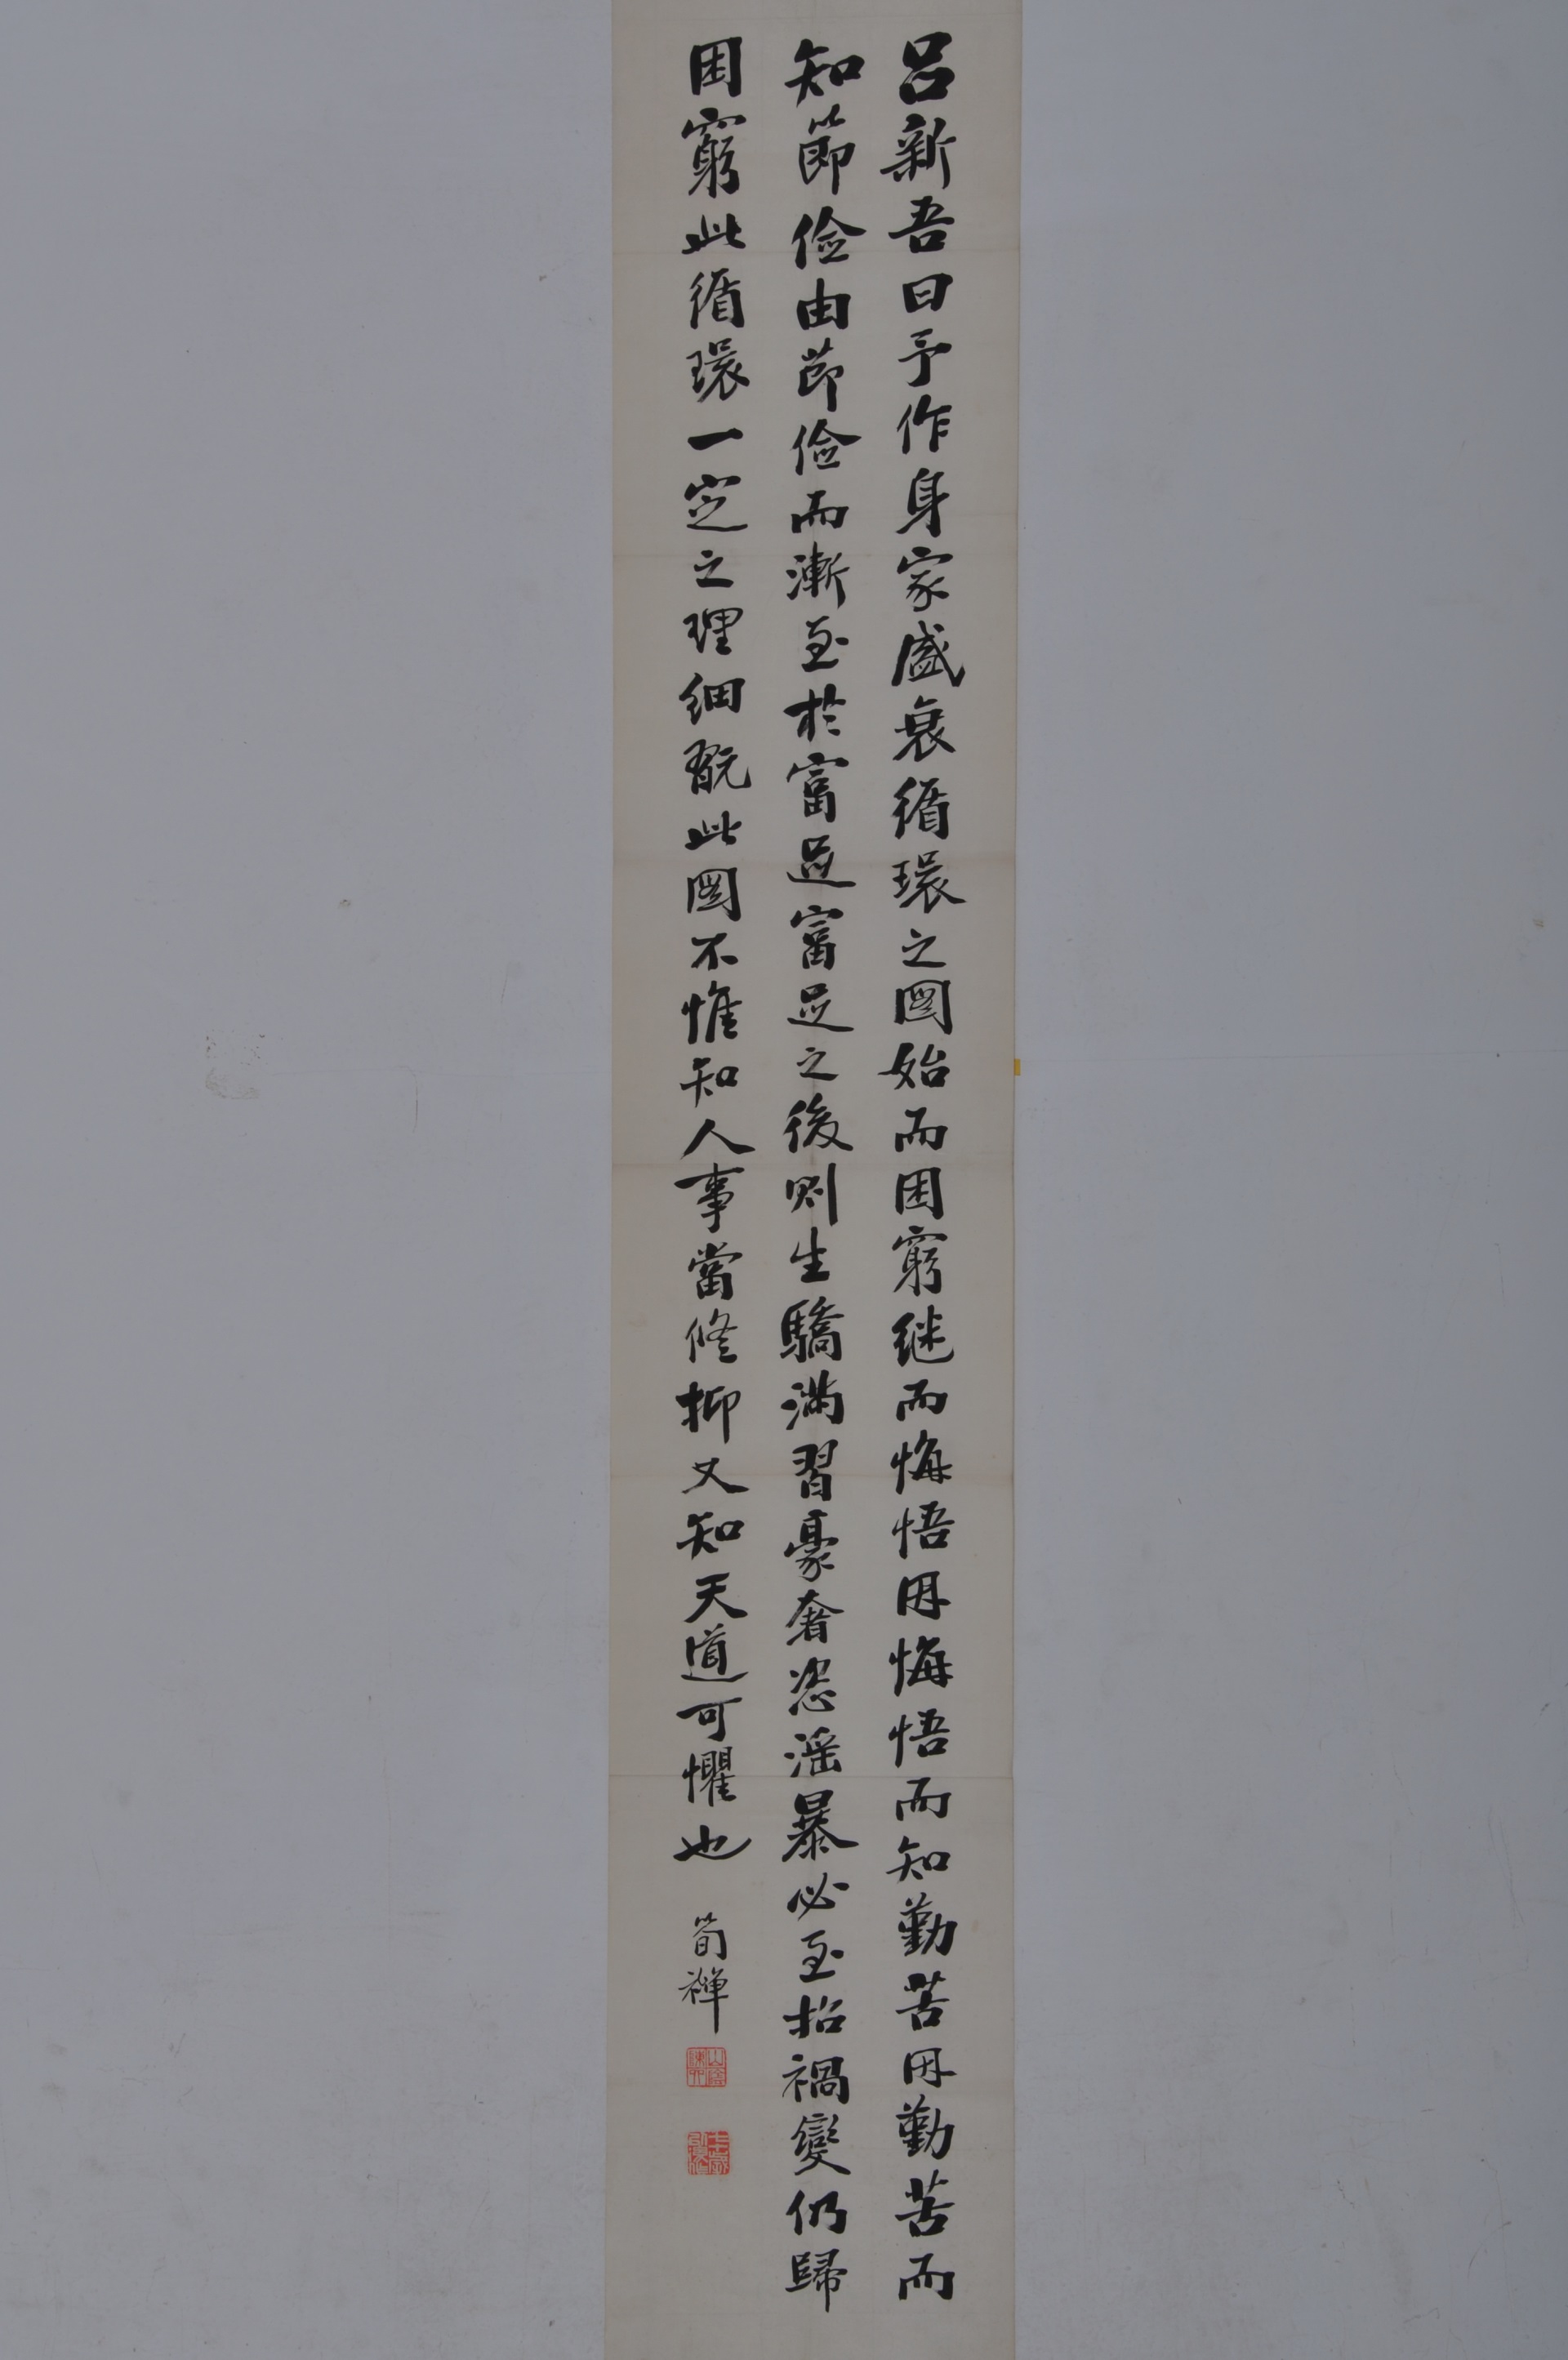 呂新吾曰予作身家盛衰循環之圖始而困窮继而悔悟因悔悟而知勤苦因勤苦而
知節儉由節儉而漸至於富足富足之後則生驕滿習豪奢恣滛暴必至招禍變仍歸
困窮此循環一定之理細翫此圖不惟知人事當修抑又知天道可懼也
荀禪